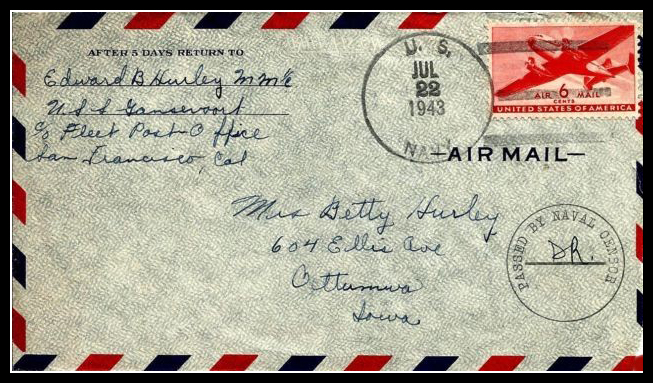 AFTER 5 DAYS RETURN TO
Edward B Hurley MM1/c
U.S.S Gansevoort
c/o Fleet Post Office
San Francisco, Cal
U. S.
JUL
22
1943
NAVY
AIR 6 MAIL
CENTS
UNITED STATES OF AMERICA
—AIR MAIL—
Mrs Betty Hurley
604 Ellis Ave
Ottumwa
Iowa
PASSED BY NAVAL CENSOR
DR.